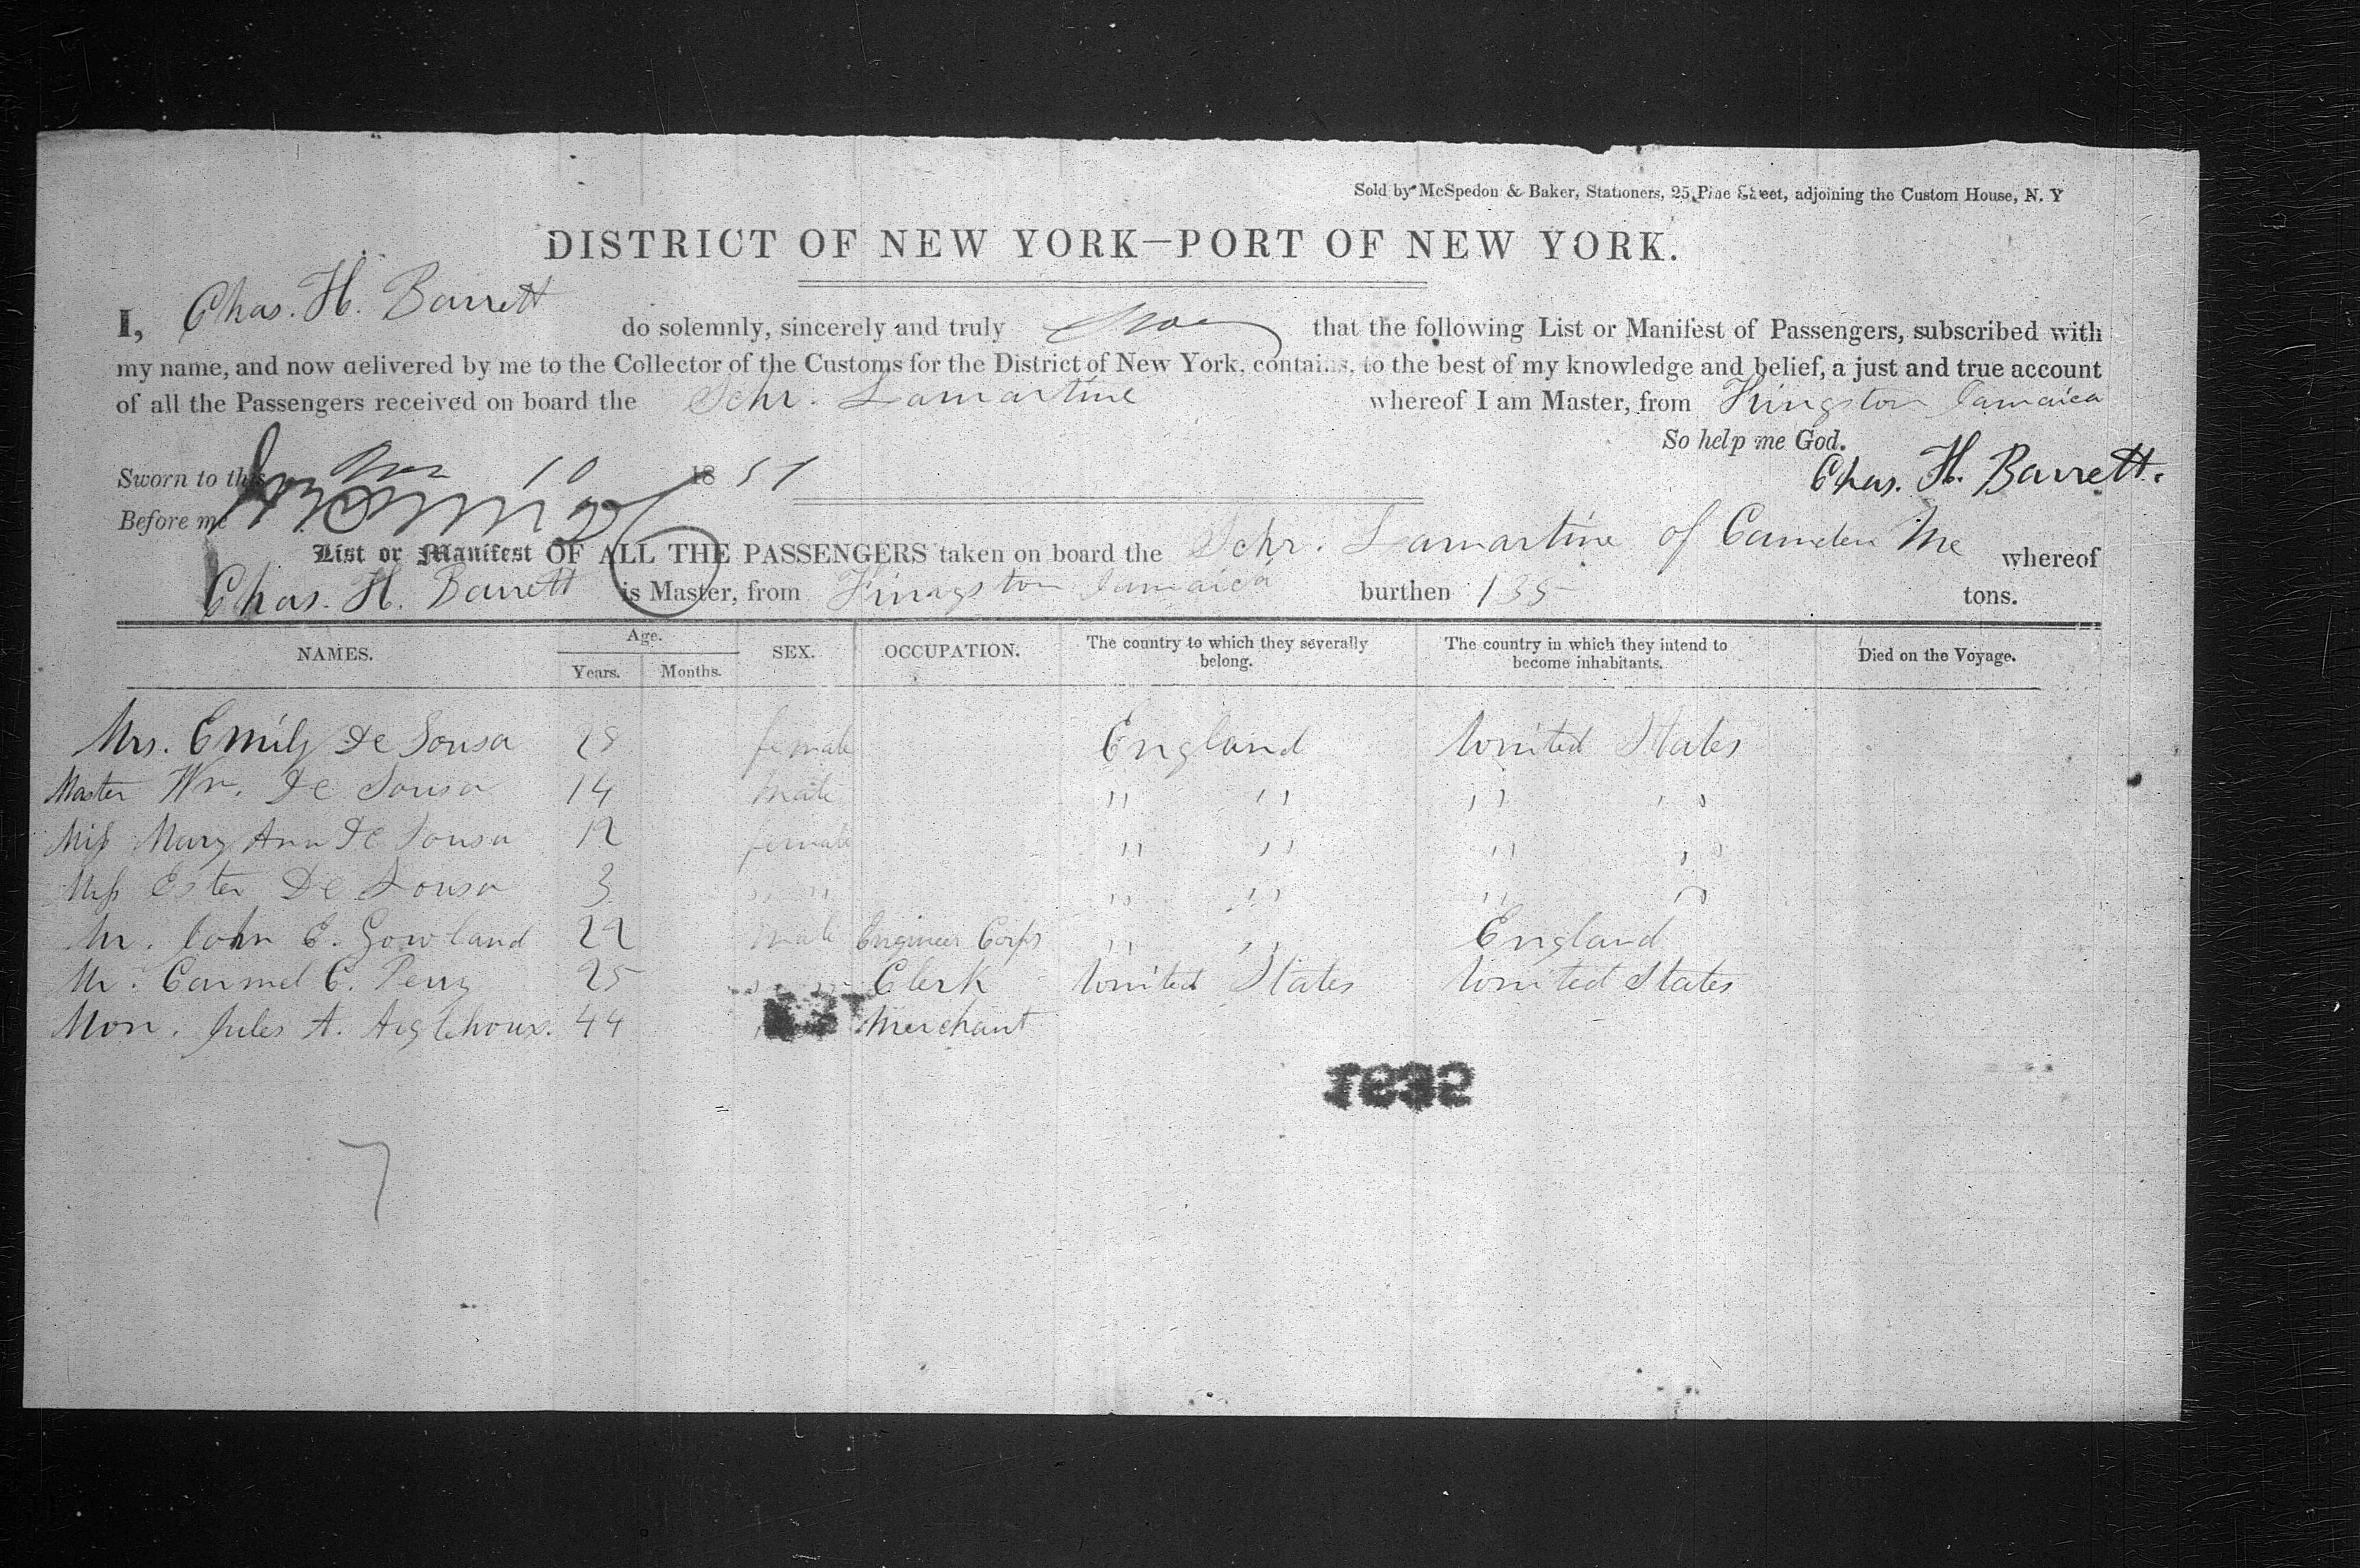 Sold by McSpedon & Baker, Stationers, 25 Pine Street, adjoining the Custom House, N. Y
DISTRICT OF NEW YORK—PORT OF NEW YORK.
I, Chas. H. Barrett do solemnly, sincerely and truly that the following List or Manifest of Passengers, subscribed with
my name, and now delivered by me to the Collector of the Customs for the District of New York, contains, to the best of my knowledge and belief, a just and true account
of all the Passengers received on board the Schr. Lamartine whereof I am Master, from Kingston Jamaica
So help me God.
Sworn to this 10 1851
Chas. H. Barrett.
Before me
List or Manifest OF ALL THE PASSENGERS taken on board the Schr. Lamartine of Camden Me whereof
Chas. H. Barrett is Master, from Kingston Jamaica burthen 135 tons.
NAMES. Age. Years. Months. SEX. OCCUPATION. The country to which they severally belong. The country in which they intend to become inhabitants. Died on the Voyage.
Mrs. Emily De Sousa 28 female England United States
Master Wm. De Sousa 14 male " " " "
Miss Mary Ann De Sousa 12 female " " " "
Miss Ester De Sousa 3 " " " " " "
Mr. John E. Gowland 22 male Engineer Corps " " England
Mr. Carmel C. Perry 25 " " Clerk United States United States
Mon. Jules A. 44 Merchant
7